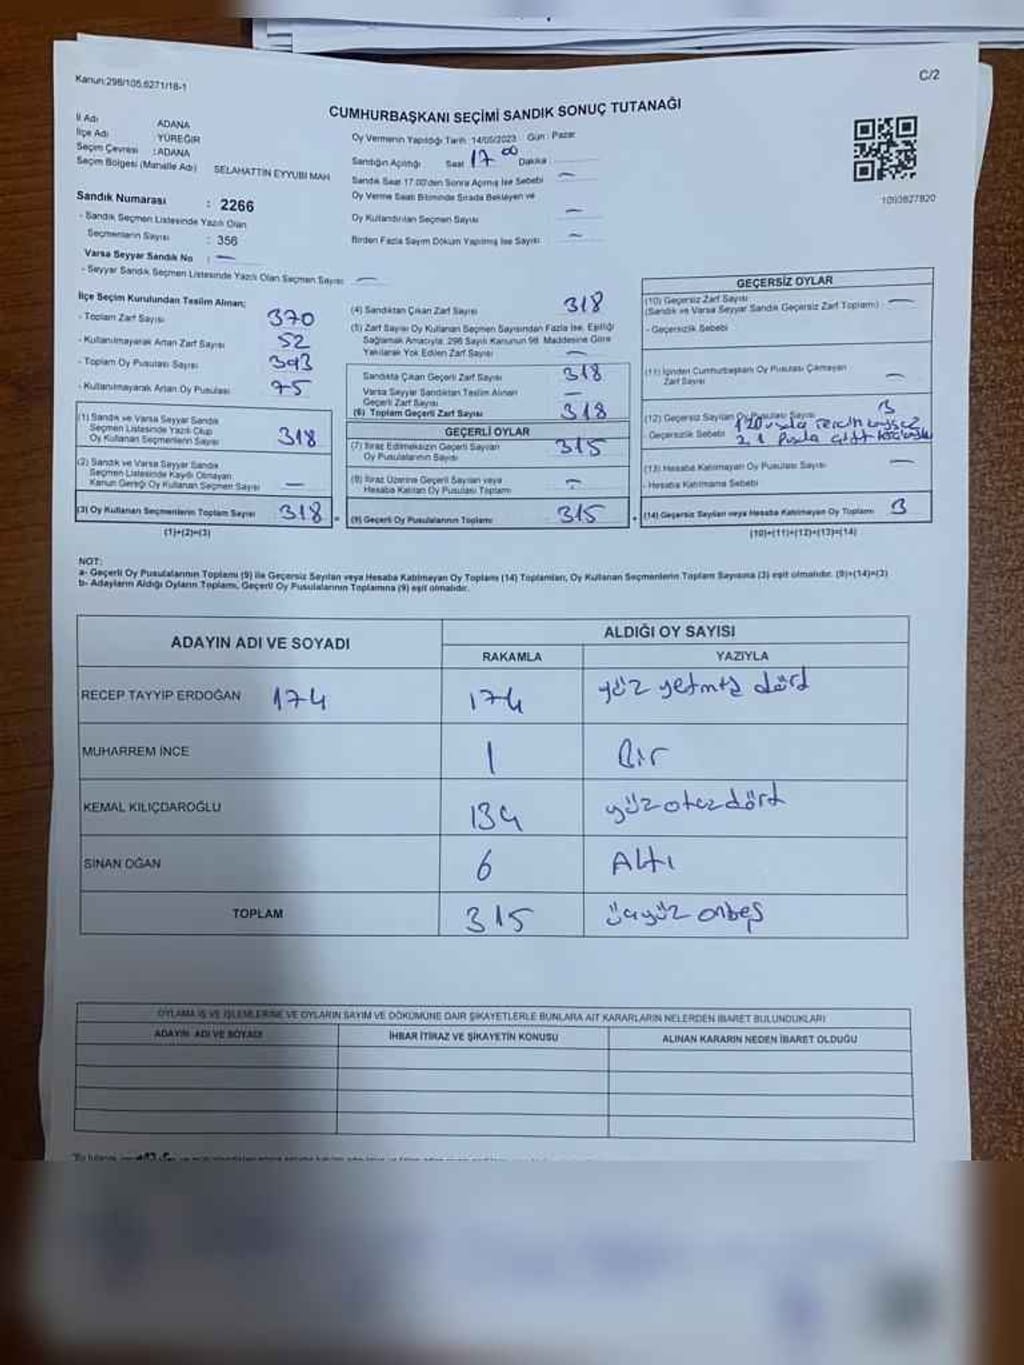 Kanun:298/105,6271/18-1
C/2
CUMHURBAŞKANI SEÇİMİ SANDIK SONUÇ TUTANAĞI
İl Adı ADANA
İlçe Adı YÜREĞİR
Seçim Çevresi :ADANA
Seçim Bölgesi (Mahalle Adı) SELAHATTİN EYYUBİ MAH
Sandık Numarası : 2266
- Sandık Seçmen Listesinde Yazılı Olan
Seçmenlerin Sayısı : 356
Varsa Seyyar Sandık No : —
- Seyyar Sandık Seçmen Listesinde Yazılı Olan Seçmen Sayısı —
Oy Vermenin Yapıldığı Tarih :14/05/2023 Gün : Pazar
Sandığın Açıldığı Saat 17 00 Dakika
Sandık Saat 17:00'den Sonra Açılmış İse Sebebi —
Oy Verme Saati Bitiminde Sırada Bekleyen ve
Oy Kullandırılan Seçmen Sayısı —
Birden Fazla Sayım Döküm Yapılmış İse Sayısı —
1093827820
İlçe Seçim Kurulundan Teslim Alınan;
- Toplam Zarf Sayısı 370
- Kullanılmayarak Artan Zarf Sayısı 52
- Toplam Oy Pusulası Sayısı 393
- Kullanılmayarak Artan Oy Pusulası 75
(1) Sandık ve Varsa Seyyar Sandık
Seçmen Listesinde Yazılı Olup
Oy Kullanan Seçmenlerin Sayısı 318
(2) Sandık ve Varsa Seyyar Sandık
Seçmen Listesinde Kayıtlı Olmayan
Kanun Gereği Oy Kullanan Seçmen Sayısı —
(3) Oy Kullanan Seçmenlerin Toplam Sayısı 318 =
(1)+(2)=(3)
(4) Sandıktan Çıkan Zarf Sayısı 318
(5) Zarf Sayısı Oy Kullanan Seçmen Sayısından Fazla İse, Eşitliği
Sağlamak Amacıyla, 298 Sayılı Kanunun 98. Maddesine Göre
Yakılarak Yok Edilen Zarf Sayısı —
Sandıkta Çıkan Geçerli Zarf Sayısı 318
Varsa Seyyar Sandıktan Teslim Alınan
Geçerli Zarf Sayısı —
(6) Toplam Geçerli Zarf Sayısı 318
GEÇERLİ OYLAR
(7) İtiraz Edilmeksizin Geçerli Sayılan
Oy Pusulalarının Sayısı 315
(8) İtiraz Üzerine Geçerli Sayılan veya
Hesaba Katılan Oy Pusulası Toplamı —
(9) Geçerli Oy Pusulalarının Toplamı 315 +
GEÇERSİZ OYLAR
(10) Geçersiz Zarf Sayısı
(Sandık ve Varsa Seyyar Sandık Geçersiz Zarf Toplamı) —
- Geçersizlik Sebebi
(11) İçinden Cumhurbaşkanı Oy Pusulası Çıkmayan
Zarf Sayısı —
(12) Geçersiz Sayılan Oy Pusulası Sayısı 3
Geçersizlik Sebebi
(13) Hesaba Katılmayan Oy Pusulası Sayısı —
- Hesaba Katılmama Sebebi
(14) Geçersiz Sayılan veya Hesaba Katılmayan Oy Toplamı 3
(10)+(11)+(12)+(13)=(14)
NOT:
a- Geçerli Oy Pusulalarının Toplamı (9) ile Geçersiz Sayılan veya Hesaba Katılmayan Oy Toplamı (14) Toplamları, Oy Kullanan Seçmenlerin Toplam Sayısına (3) eşit olmalıdır. (9)+(14)=(3)
b- Adayların Aldığı Oyların Toplamı, Geçerli Oy Pusulalarının Toplamına (9) eşit olmalıdır.
ADAYIN ADI VE SOYADI
ALDIĞI OY SAYISI
RAKAMLA YAZIYLA
RECEP TAYYİP ERDOĞAN 174 174 yüz yetmiş dört
MUHARREM İNCE 1 Bir
KEMAL KILIÇDAROĞLU 134 yüz otuz dört
SİNAN OĞAN 6 Altı
TOPLAM 315 üçyüz onbeş
OYLAMA İŞ VE İŞLEMLERİNE VE OYLARIN SAYIM VE DÖKÜMÜNE DAİR ŞİKAYETLERLE BUNLARA AİT KARARLARIN NELERDEN İBARET BULUNDUKLARI
ADAYIN ADI VE SOYADI
İHBAR İTİRAZ VE ŞİKAYETİN KONUSU
ALINAN KARARIN NEDEN İBARET OLDUĞU